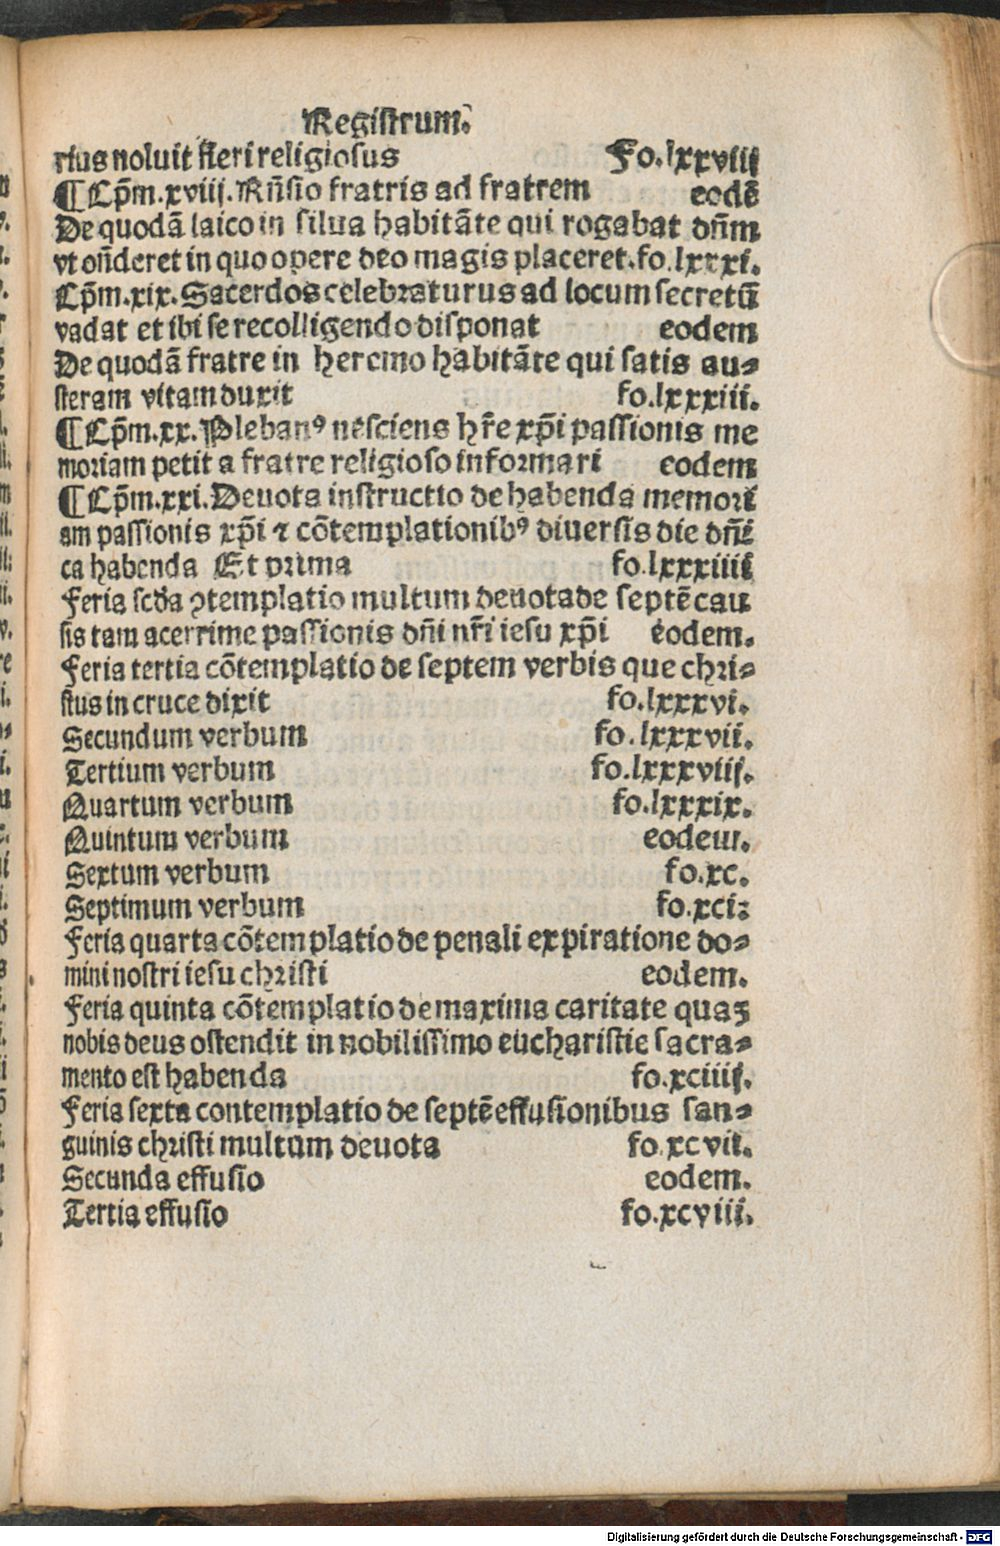 Registrum.
rius noluit fieri religiosus Fo.lxxviij
¶ Cp̄m.xviij. Rn̄sio fratris ad fratrem eodē
De quodā laico in silua habitāte qui rogabat dn̄m
vt on̄deret in quo opere deo magis placeret.fo.lxxxi.
Cp̄m.xix. Sacerdos celebraturus ad locum secretū
vadat et ibi se recolligendo disponat eodem
De quodā fratre in heremo habitāte qui satis au⸗
steram vitam duxit fo.lxxxiii.
¶ Cp̄m.xx. Plebanꝰ nesciens hr̄e xp̄i passionis me
moriam petit a fratre religioso informari eodem
¶ Cp̄m.xxi. Deuota instructio de habenda memori
am passionis xp̄i ⁊ cōtemplationibꝰ diuersis die dn̄i
ca habenda Et prima fo.lxxxiiii
Feria scd̄a ꝯtemplatio multum deuota de septē cau
sis tam acerrime passionis dn̄i nr̄i iesu xp̄i eodem.
Feria tertia cōtemplatio de septem verbis que chri⸗
stus in cruce dixit fo.lxxxvi.
Secundum verbum fo.lxxxvii.
Tertium verbum fo.lxxxviij.
Quartum verbum fo.lxxxix.
Quintum verbum eodem.
Sextum verbum fo.xc.
Septimum verbum fo.xci:
Feria quarta cōtemplatio de penali expiratione do⸗
mini nostri iesu christi eodem.
Feria quinta cōtemplatio de maxima caritate quaꝫ
nobis deus ostendit in nobilissimo eucharistie sacra⸗
mento est habenda fo.xciiij.
Feria sexta contemplatio de septē effusionibus san⸗
guinis christi multum deuota fo.xcvii.
Secunda effusio eodem.
Tertia effusio fo.xcviii.
Digitalisierung gefördert durch die Deutsche Forschungsgemeinschaft - DFG